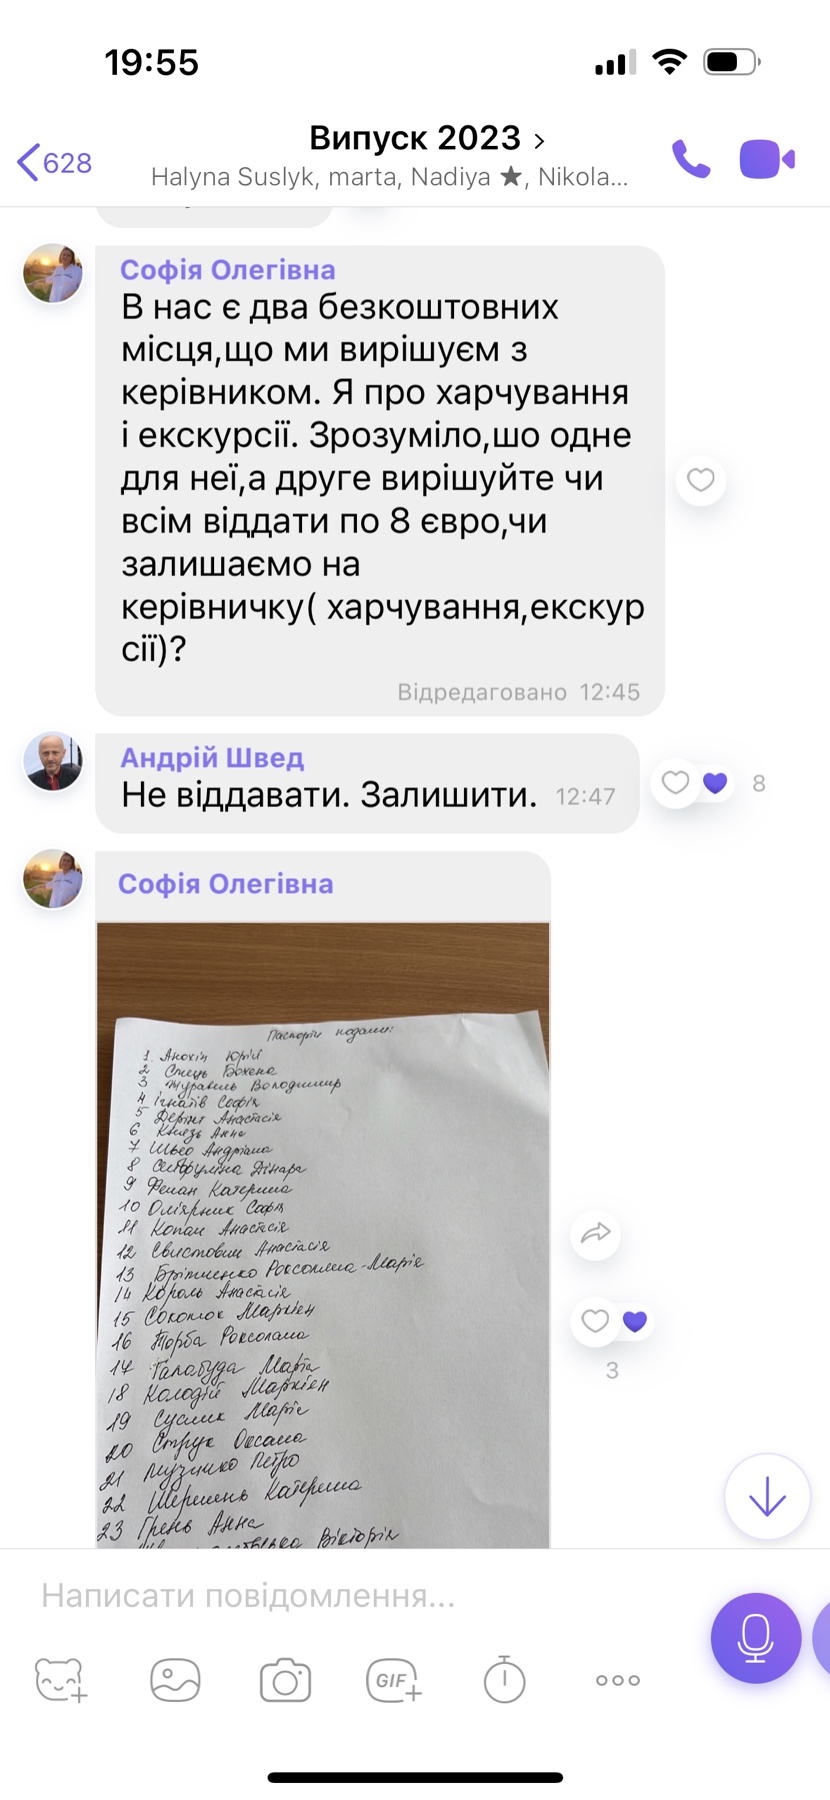 19:55
628
Випуск 2023 >
Halyna Suslyk, marta, Nadiya ★, Nikola...
Софія Олегівна
В нас є два безкоштовних
місця,що ми вирішуєм з
керівником. Я про харчування
і екскурсії. Зрозуміло,шо одне
для неї,а друге вирішуйте чи
всім віддати по 8 євро,чи
залишаємо на
керівничку( харчування,екскур
сії)?
Відредаговано 12:45
Андрій Швед
Не віддавати. Залишити. 12:47
8
Софія Олегівна
Паспорти подали:
1. Анохін Юрій
2 Спець Божена
3 Журавель Володимир
4 Ігнатів Софія
5 Анастасія
6 Князь Анна
7 Андріана
8 Дінара
9 Катерина
10 Оліярник Софія
11 Копач Анастасія
12 Свистович Анастасія
13 Роксолана-Марія
14 Король Анастасія
15 Соколюк Маркіян
16 Торба Роксолана
17 Галабуда Марта
18 Колодій Маркіян
19 Суслик Марія
20 Струк Оксана
21 Музичко Петро
22 Шершень Катерина
23 Грень Анна
Вікторія
3
Написати повідомлення...
GIF